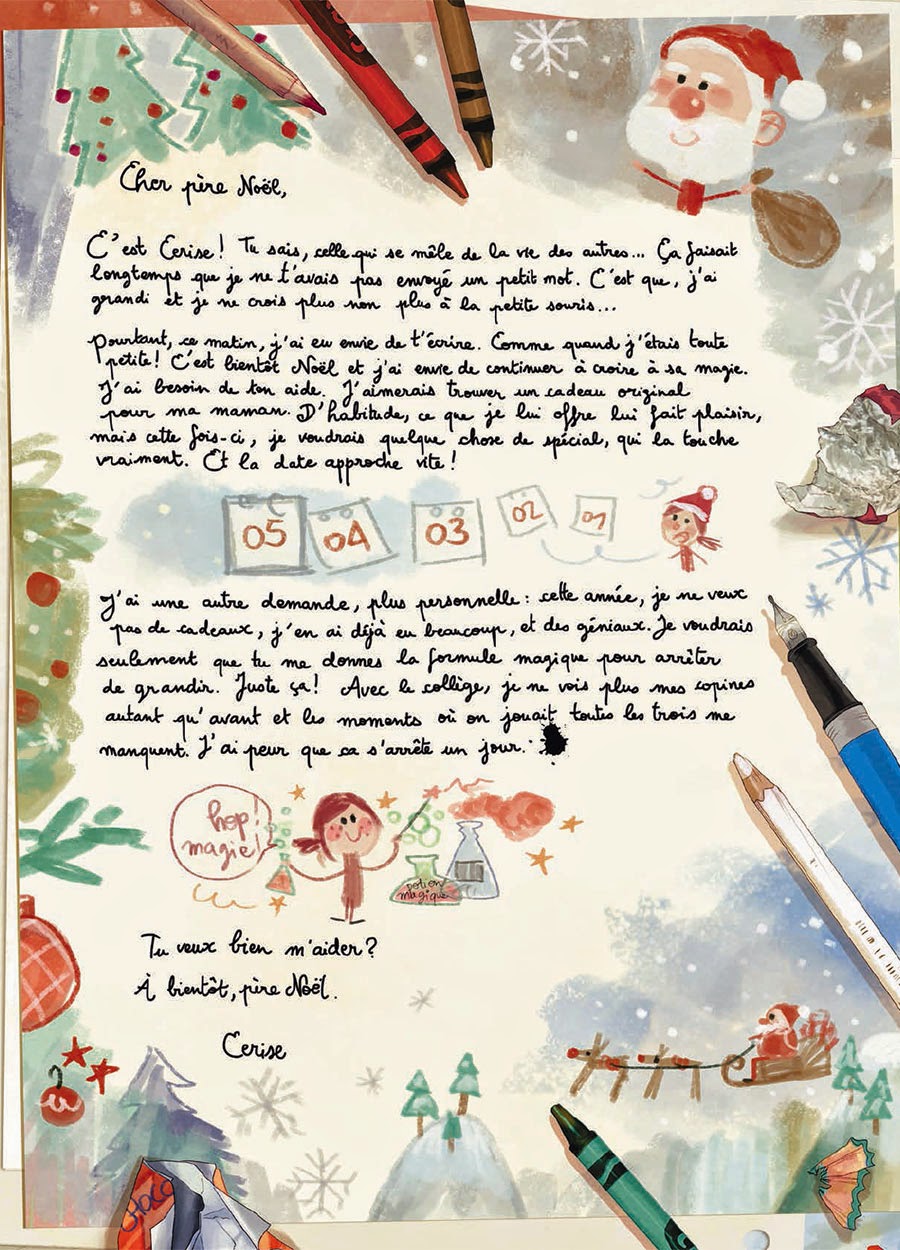 Cher père Noël,
C'est Cerise ! Tu sais, celle qui se mêle de la vie des autres... Ça faisait
longtemps que je ne t'avais pas envoyé un petit mot. C'est que, j'ai
grandi et je ne crois plus non plus à la petite souris...
Pourtant, ce matin, j'ai eu envie de t'écrire. Comme quand j'étais toute
petite ! C'est bientôt Noël et j'ai envie de continuer à croire à sa magie.
J'ai besoin de ton aide. J'aimerais trouver un cadeau original
pour ma maman. D'habitude, ce que je lui offre lui fait plaisir,
mais cette fois-ci, je voudrais quelque chose de spécial, qui la touche
vraiment. Et la date approche vite !
05 04 03 02 01
J'ai une autre demande, plus personnelle : cette année, je ne veux
pas de cadeaux, j'en ai déjà eu beaucoup, et des géniaux. Je voudrais
seulement que tu me donnes la formule magique pour arrêter
de grandir. Juste ça ! Avec le collège, je ne vois plus mes copines
autant qu'avant et les moments où on jouait toutes les trois me
manquent. J'ai peur que ça s'arrête un jour.
hop !
magie !
potion
magique
Tu veux bien m'aider ?
À bientôt, père Noël.
Cerise
CHOCO